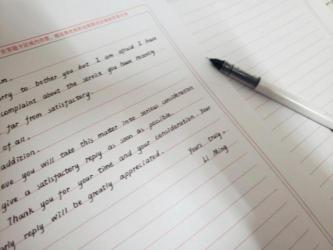 sorry to bother you but I am afraid I have
complaint about the service you have recently
far from satisfactory.
of all.
addition.
you will take this matter into serious consideration
give a satisfactory reply as soon as possible.
Thank you for your time and your consideration. Your
early reply will be greatly appreciated.
Yours truly.
Li Ming